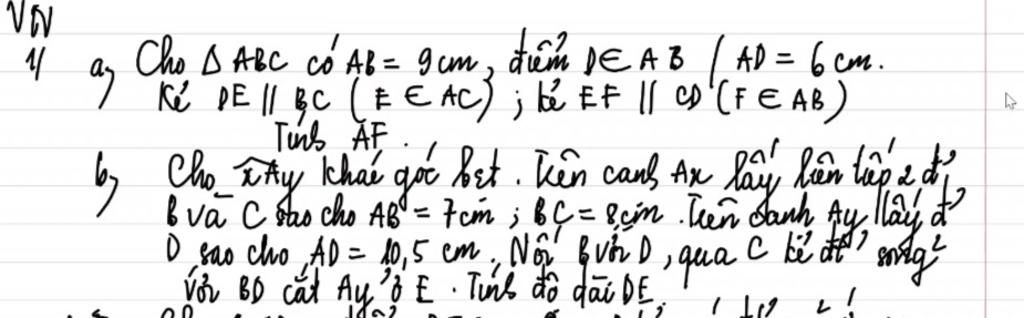 VN
1/ a, Cho Δ ABC có AB = 9cm, điểm D ∈ AB / AD = 6cm.
Kẻ DE // BC (E ∈ AC) ; kẻ EF // CD (F ∈ AB)
Tính AF.
b, Cho xAy khác góc bẹt. Trên cạnh Ax lấy liên tiếp 2 đ'
B và C sao cho AB = 7cm ; BC = 8cm. Trên cạnh Ay lấy đ'
D sao cho AD = 10,5 cm. Nối B với D, qua C kẻ đt' song²
với BD cắt Ay ở E. Tính độ dài DE.